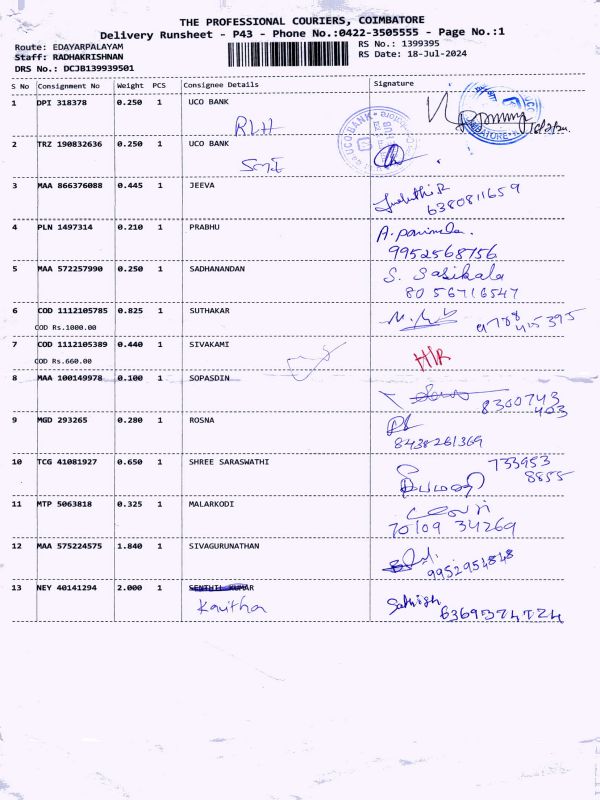 THE PROFESSIONAL COURIERS, COIMBATORE
Delivery Runsheet - P43 - Phone No.:0422-3505555 - Page No.:1
Route: EDAYARPALAYAM
Staff: RADHAKRISHNAN
DRS No.: DCJB139939501
RS No.: 1399395
RS Date: 18-Jul-2024
S No Consignment No Weight PCS Consignee Details Signature
1 DPI 318378 0.250 1 UCO BANK
RLH
2 TRZ 190832636 0.250 1 UCO BANK
UCO BANK
3 MAA 866376088 0.445 1 JEEVA
6380811659
4 PLN 1497314 0.210 1 PRABHU A. Parimela.
9952568756
5 MAA 572257990 0.250 1 SADHANANDAN S. Sasikala
8056716547
6 COD 1112105785 0.825 1 SUTHAKAR
COD Rs.1000.00
9788415395
7 COD 1112105389 0.440 1 SIVAKAMI H/R
COD Rs.660.00
8 MAA 100149978 0.100 1 SOPASDIN
8300743
403
9 MGD 293265 0.280 1 ROSNA
8438261369
10 TCG 41081927 0.650 1 SHREE SARASWATHI 733953
8855
11 MTP 5063818 0.325 1 MALARKODI
70109 34269
12 MAA 575224575 1.840 1 SIVAGURUNATHAN
9952954848
13 NEY 40141294 2.000 1 SENTHIL KUMAR
Kavitha Sathish
6369374724